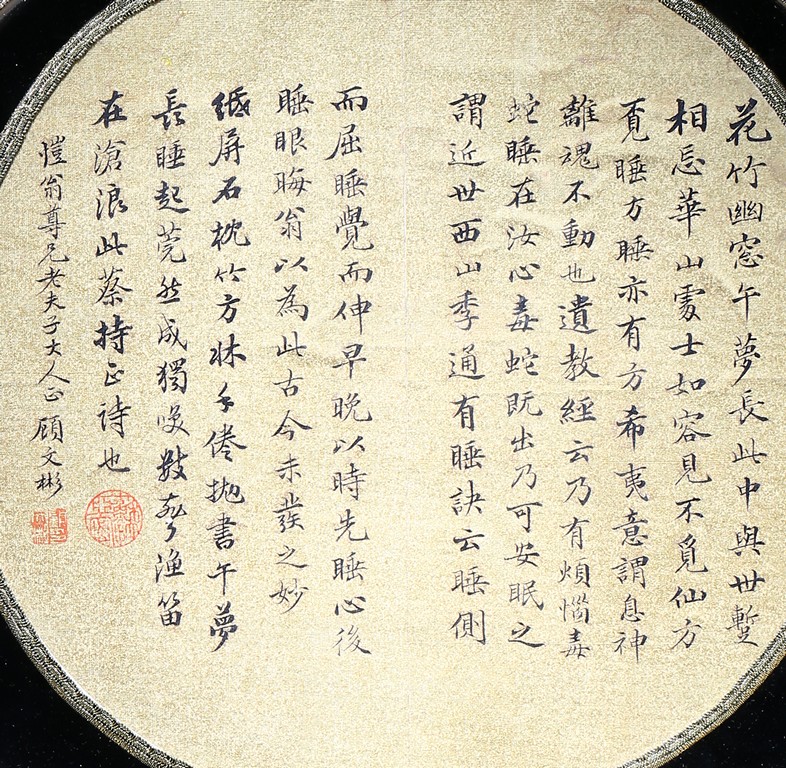 花竹幽窓午夢長此中與世蹔
相忘華山䖏士如容見不覓仙方
覓睡方睡亦有方希夷意謂息神
離魂不動也遺教經云乃有煩惱毒
蛇睡在汝心毒蛇既出乃可安眠之
謂近世西山季通有睡訣云睡側
而屈睡覺而伸早晚以時先睡心後
睡眼晦翁以為此古今未發之妙
紙屏石枕竹方牀手倦拋書午夢
長睡起莞然成獨唉數聲漁笛
在滄浪此蔡持正詩也
愷翁尊兄老夫子大人正 顧文彬